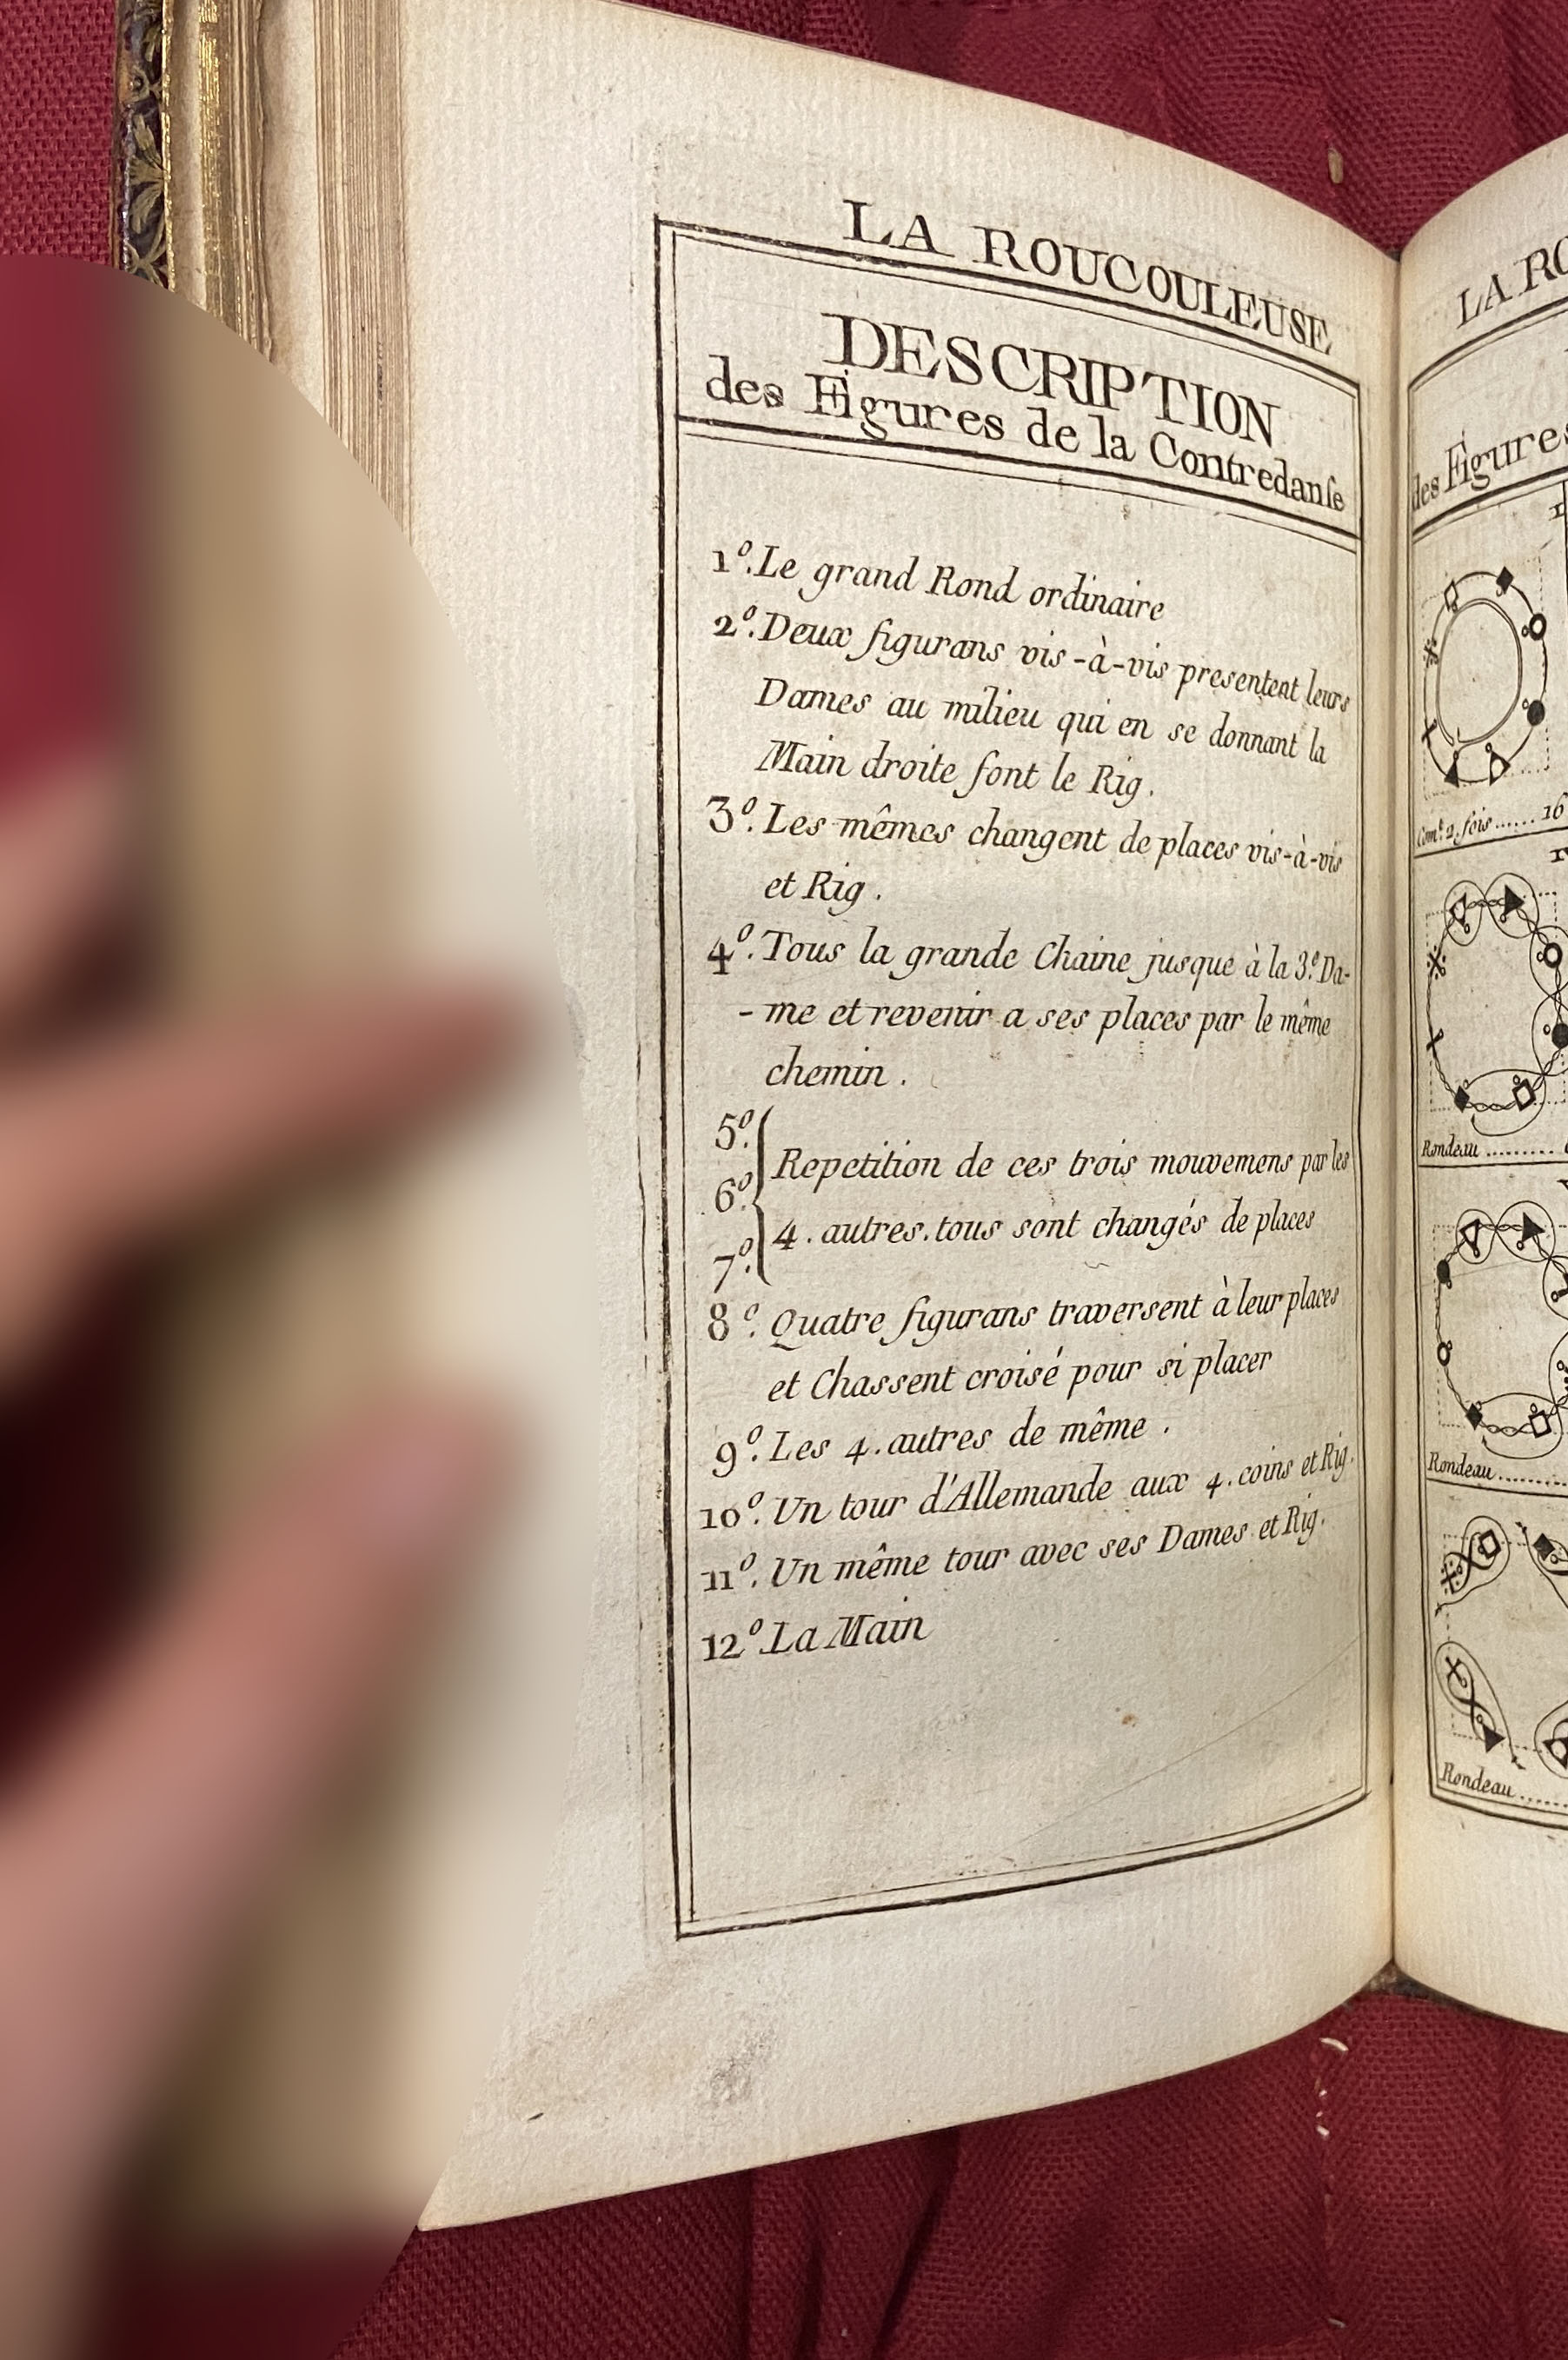 LA ROUCOULEUSE
DESCRIPTION
des Figures de la Contredanſe
1º. Le grand Rond ordinaire
2º. Deux figurans vis-à-vis presentent leurs
Dames au milieu qui en se donnant la
Main droite font le Rig.
3º. Les mêmes changent de places vis-à-vis
et Rig.
4º. Tous la grande Chaine jusque à la 3.e Da-
- me et revenir a ses places par le même
chemin.
5º.
6º.
7º.
Repetition de ces trois mouvemens par les
4. autres. tous sont changés de places
8º. Quatre figurans traversent à leur places
et Chassent croisé pour si placer
9º. Les 4. autres de même.
10º. Un tour d'Allemande aux 4. coins et Rig.
11º. Un même tour avec ses Dames et Rig.
12º. La Main
LA RO
des Figures
Com.t 2. fois ...... 16
Rondeau .........
Rondeau .........
Rondeau ......